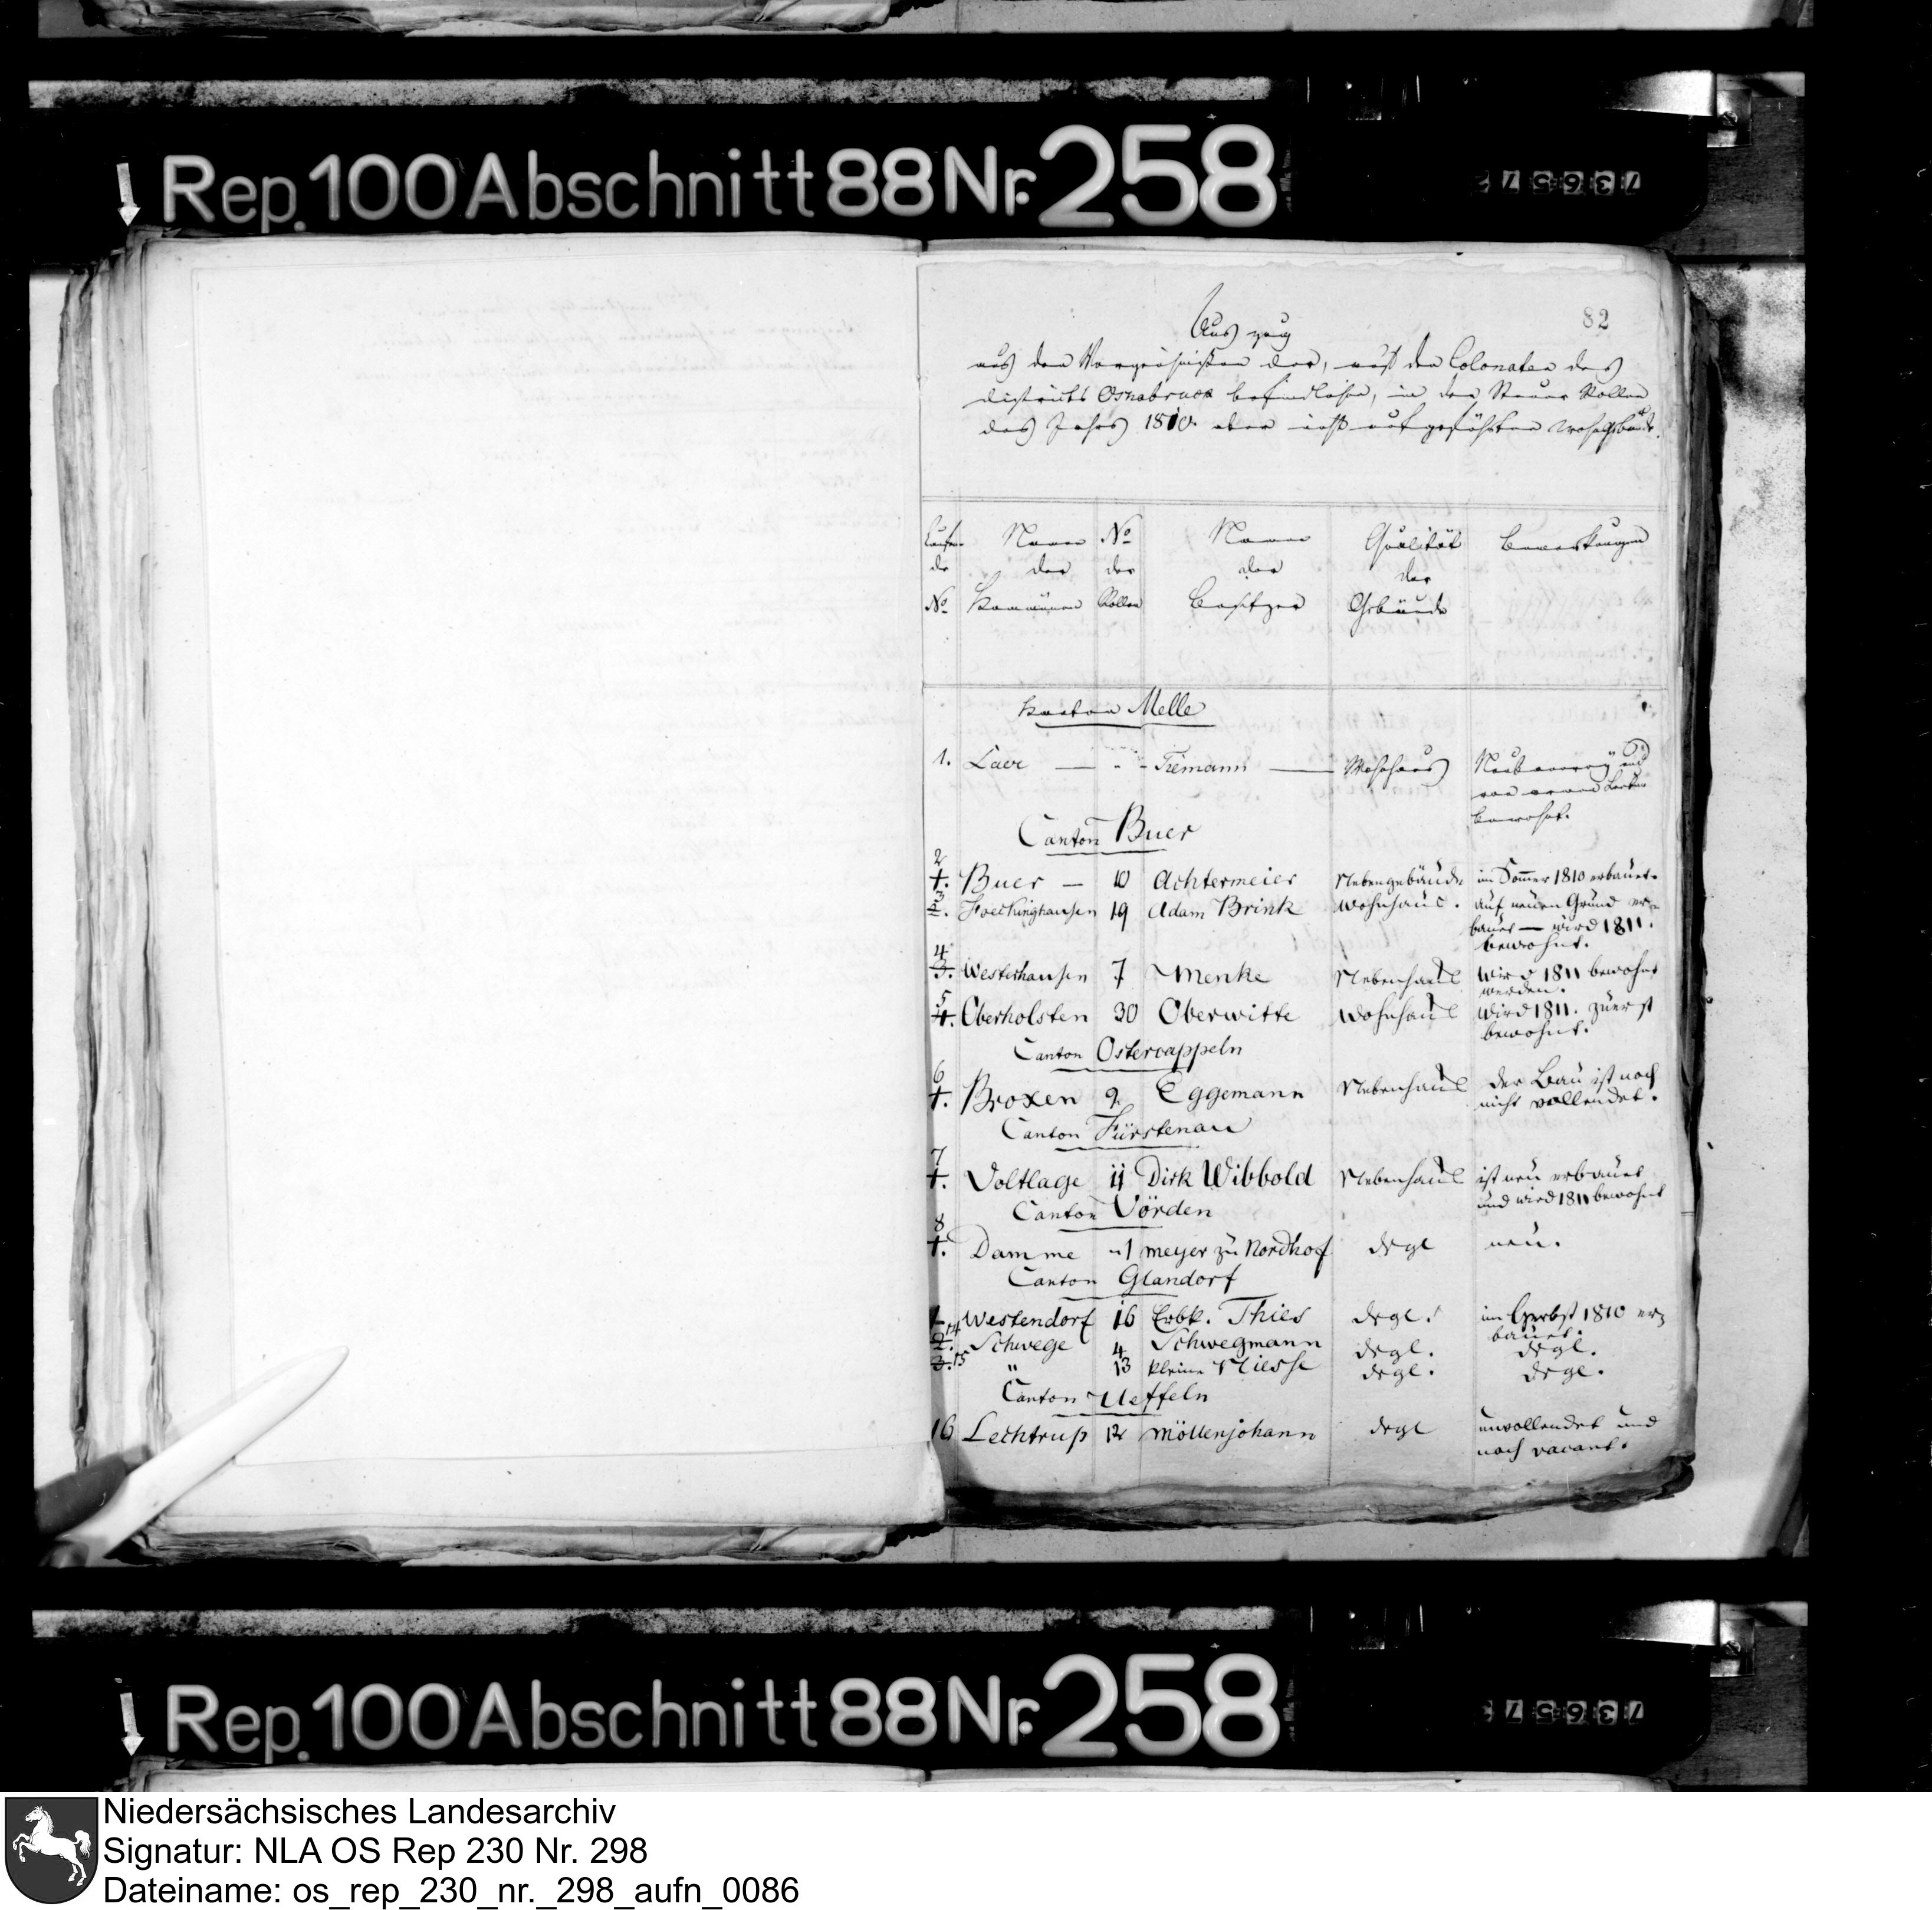 Rep. 100 Abschnitt 88 Nr. 258
82
Auszug
aus den Verzeichnißen der, auf den Colonaten des
Districts Osnabruck befindlichen, in den Steuer Rollen
des Jahrs 1810. aber nicht aufgeführten Wohngebäude.
Laufen- Namen No Namen Qualität Bemerkungen
de der der der der
No Kommünen Rollen Besitzer Gebäude
Kanton Melle
1. Laer — " - Tiemann — Wohnhaus
bewohnt.
Canton Buer
2
1. Buer — 10 Achtermeier Nebengebäude im Sommer 1810 erbauet.
3
2. Hoeckinghausen 19 Adam Brink Wohnhaus. auf neuen Grund er-
bauet — wird 1811.
bewohnt.
4
3. Westerhausen 7 Menke Nebenhaus Wird 1811 bewohnt
werden.
5
4. Oberholsten 30 Oberwitte Wohnhaus Wird 1811. zuerst
bewohnt.
Canton Ostercappeln
6
1. Broxen 9 Eggemann Nebenhaus Der Bau ist noch
nicht vollendet.
Canton Fürstenau
7
1. Voltlage 11 Dirk Wibbold Nebenhaus ist neu erbauet
und wird 1811 bewohnt
Canton Vörden
8
1. Damme 1 Meyer zu Nordhof dsgl neu.
Canton Glandorf
1. Westendorf 16 Erbk. Thies dsgl. im Herbst 1810 er-
bauet.
2. 14 Schwege 4 Schwegmann dsgl. dsgl.
3. 15 " 13 kleine Niesse dsgl. dsgl.
Canton Ueffeln
16 Lechtrup 12 Möllenjohann dsgl unvollendet und
noch vacant.
Rep. 100 Abschnitt 88 Nr. 258
Niedersächsisches Landesarchiv
Signatur: NLA OS Rep 230 Nr. 298
Dateiname: os_rep_230_nr._298_aufn_0086